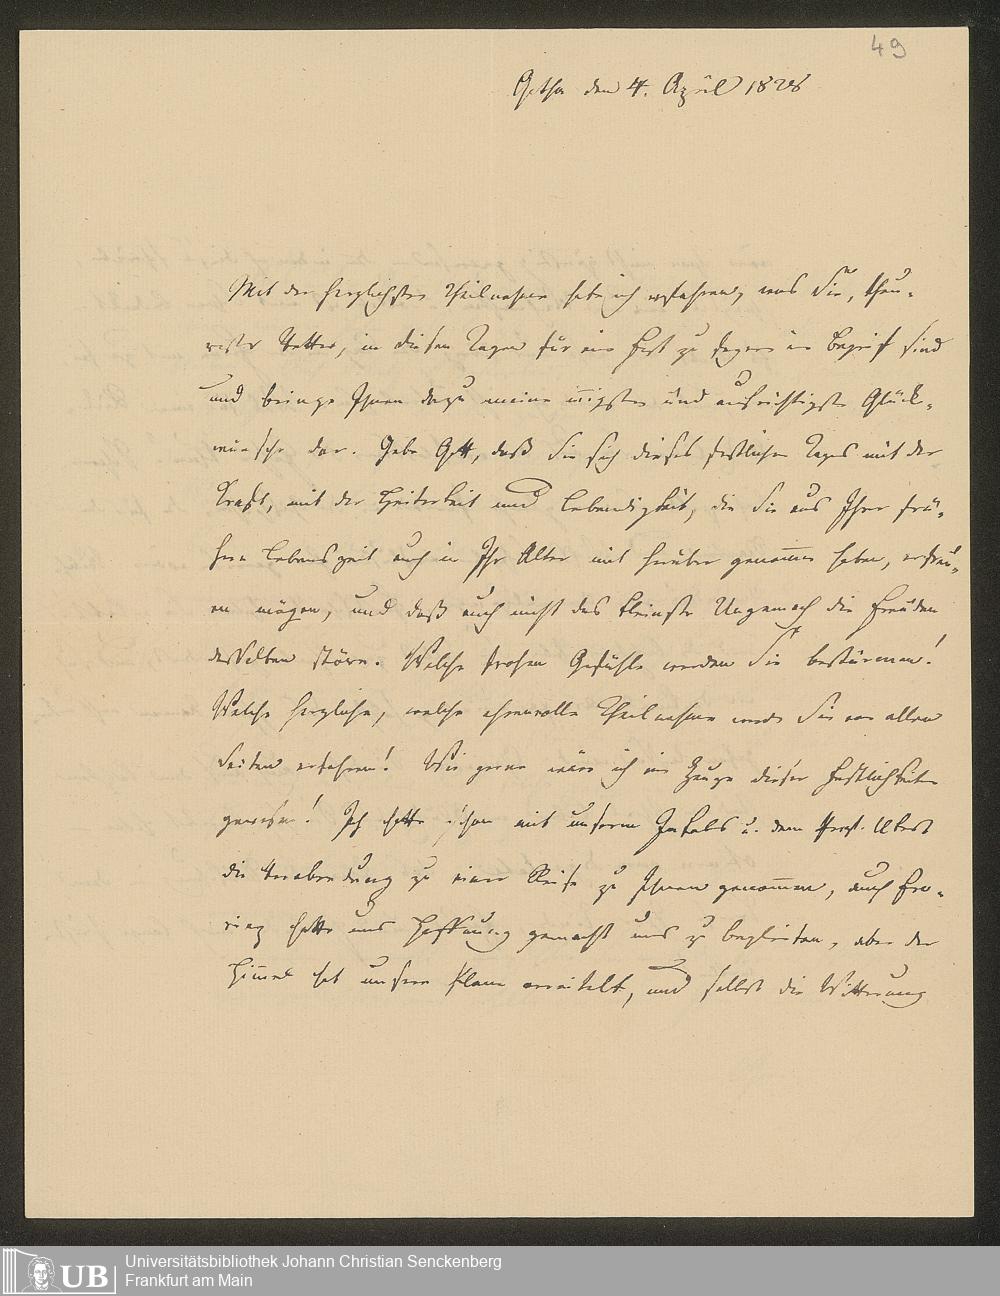 49
Gotha den 4. April 1828
Mit der herzlichsten Theilnahme habe ich erfahren, was Sie, theu-
rester Vetter, in diesen Tagen für ein Fest zu feyern im Begrif sind
und bringe Ihnen dazu meine innigsten und aufrichtigsten Glück-
wünsche dar. Gebe Gott, daß Sie sich dieses festlichen Tages mit der
Kraft, mit der Heiterkeit und Lebendigkeit, die Sie aus Ihrer frü-
hern Lebenszeit auch in Ihr Alter mit herüber genommen haben, erfreu-
en mögen, und daß auch nicht das kleinste Ungemach die Freuden
desselben störe. Welche frohen Gefühle werden Sie bestürmen!
Welche herzliche, welche ehrenvolle Theilnahme werden Sie von allen
Seiten erfahren! Wie gerne wäre ich ein Zeuge dieser Festlichkeiten
gewesen! Ich hatte schon mit unserm Jakobs u. dem Ukert
die Verabredung zu einer Reise zu Ihnen genommen, auch
hatte uns Hoffnung gemacht uns zu begleiten, aber der
Himmel hat unsere Plane vereitelt, und selbst die Witterung
Universitätsbibliothek Johann Christian Senckenberg
Frankfurt am Main
UB